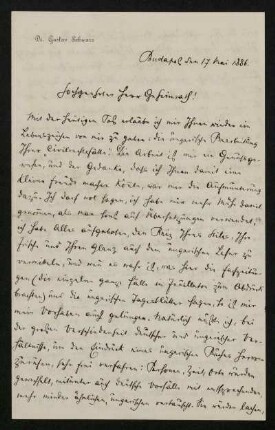 Dr. Gustav Schwarz
Budapest den 17 Mai 1886.
Hochgeehrter Herr Geheimrath!
Mit der heutigen Post erlaube ich mir Ihnen wieder ein
Lebenszeichen von mir zu geben: die ungarische Bearbeitung
Ihrer Civilrechtsfälle. Die Arbeit ist mir ein Genuß ge-
wesen, und der Gedanke, daß ich Ihnen damit eine
kleine Freude machen könnte, war mir die Aufmunterung
dazu. Ich darf wol sagen, ich habe mir mehr Mühe damit
genommen, als man sonst auf Übersetzungen verwendet;
ich habe Alles aufgeboten, den Reiz Ihres Stiles, Ihre
Frische und Ihren Glanz auf den ungarischen Leser zu
vermitteln, und wie es mehr ist, was hier die Fachzeitun-
gen (die einzelne ganze Fälle im Feuilleton zum Abdruck
brachten) und die ungarischen Tagesblätter sagen, so ist mir
mein Vorhaben auch gelungen. Natürlich mußte ich, bei
der großen Verschiedenheit deutscher und ungarischer Ver-
hältnisse, um den Eindruck eines ungarischen Buches hervor-
zurufen, sehr frei verfahren: Personen, Zeit, Orte wurden
gewechselt, mitunter auch deutsche Vorfälle mit entsprechenden,
mehr minder ähnlichen, ungarischen vertauscht. Sie würden lachen,